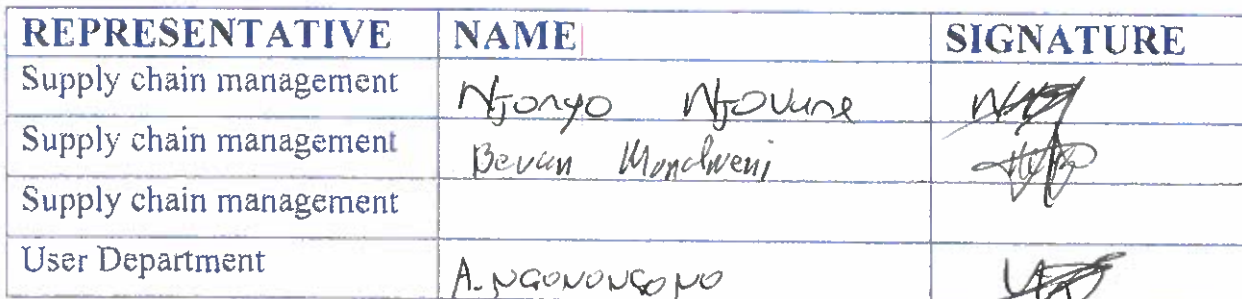 REPRESENTATIVE NAME SIGNATURE
Supply chain management Njonyo Njovune
Supply chain management Bevan Mondweni
Supply chain management
User Department A. NGONONGONO